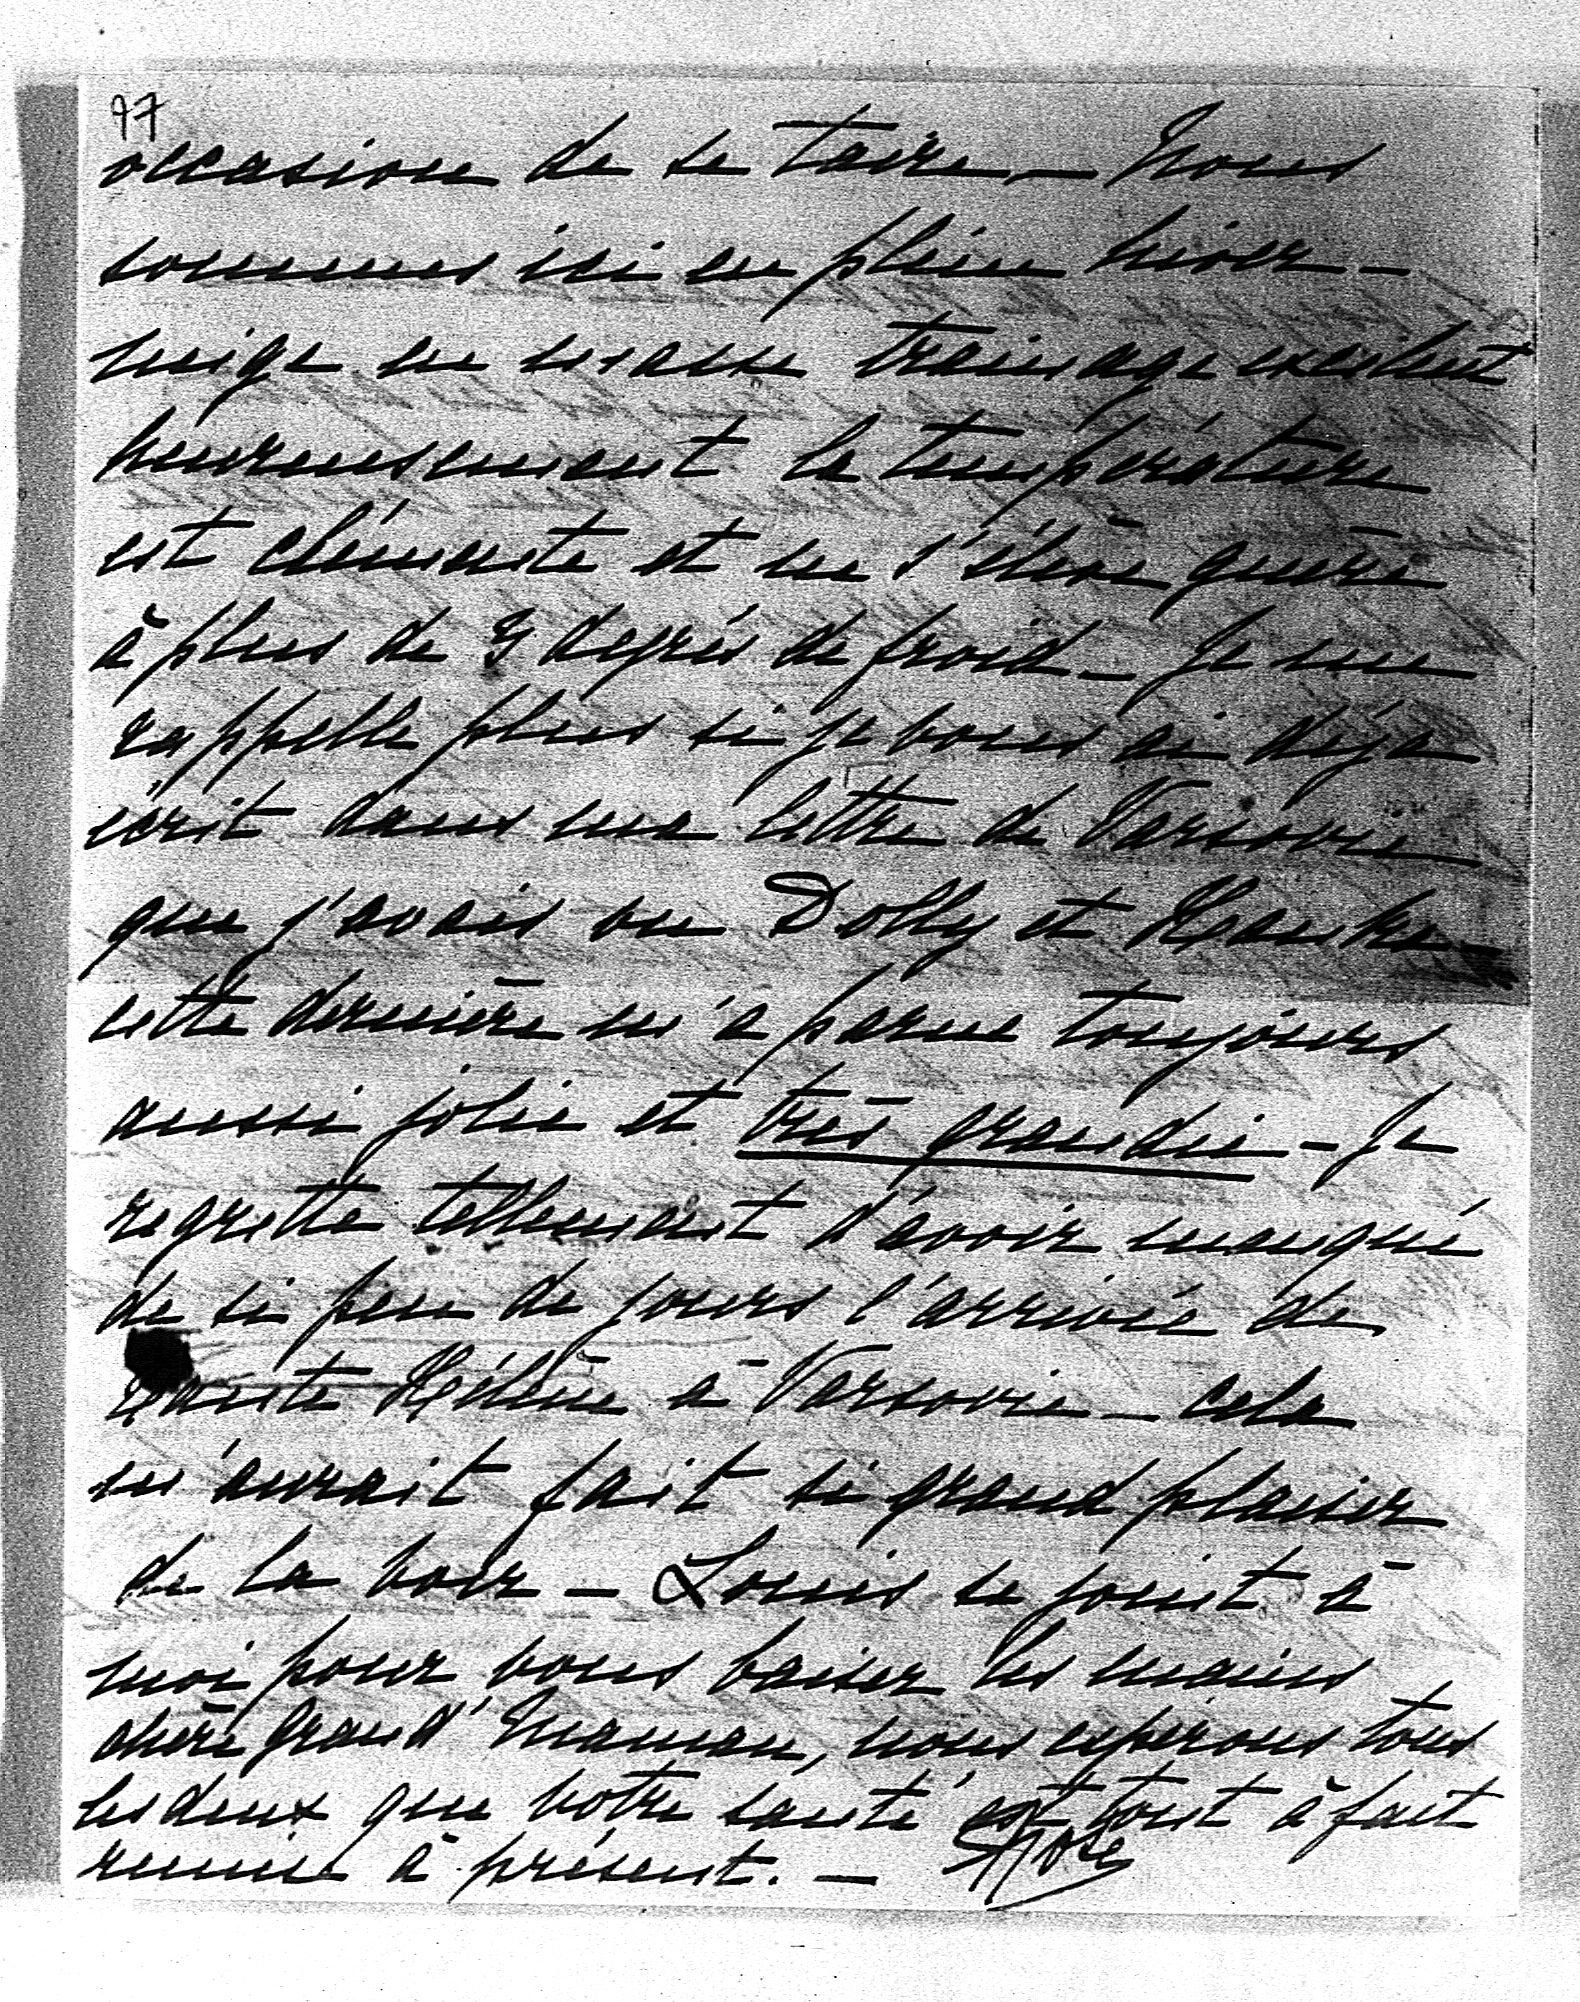 97
occasion de se taire — Nous
sommes ici en plein hiver —
neige en masse trainage excellent
heureusement la température
est clémente et ne s'élève guère
à plus de 3 degrés de froid — Je ne
rappelle plus si je vous ai déjà
écrit dans ma lettre de Varsovie
que j'avais vu Dolly et —
cette dernière m'a parue toujours
aussi jolie et très grandie — Je
regrette tellement d'avoir manqué
de si peu de jours l'arrivée de
tante Hélène à Varsovie — cela
m'aurait fait si grand plaisir
de la voir — Louis se joint à
moi pour vous baiser les mains
chère grand'Maman, nous espérons tous
les deux que votre santé est tout à fait
remise à présent. —